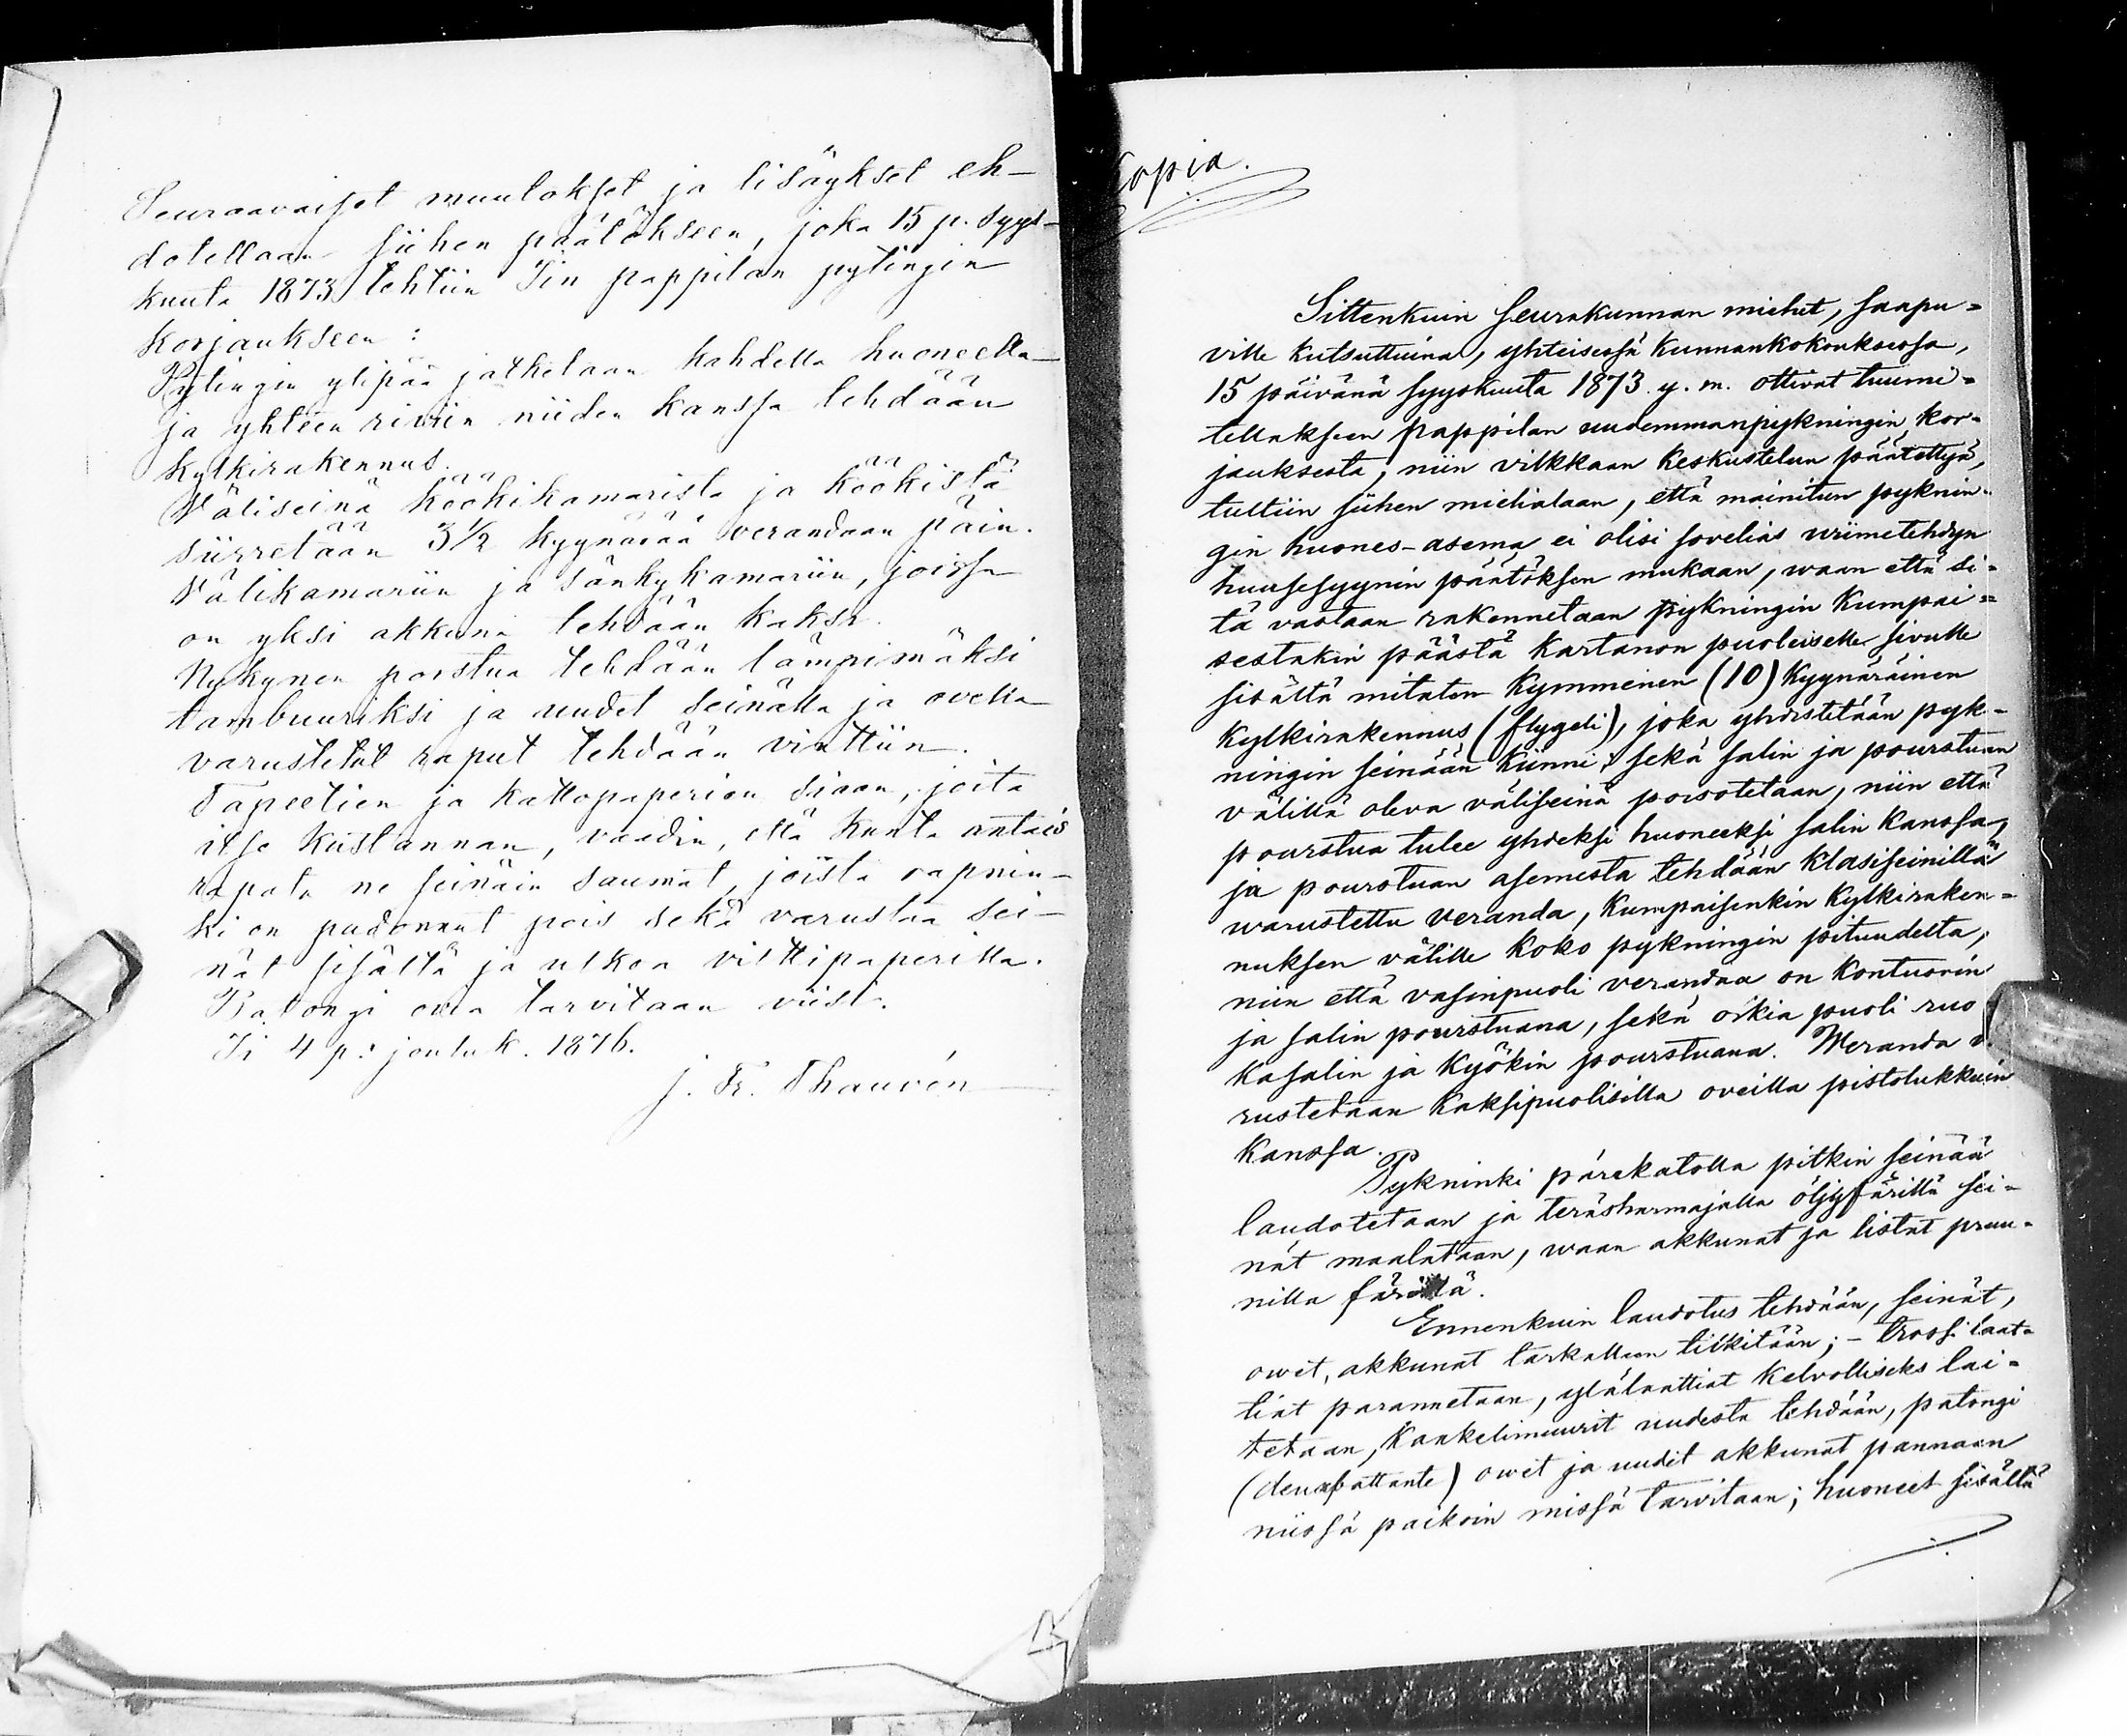 Seuraavaiset muutokset ja lisäykset eh-
dotellaan siihen päätökseen, joka 15 p. syys-
kuuta 1873 tehtiin Iin pappilan pytingin
korjaukseen:
Pytingin ylipää jatketaan kahdella huoneella
ja yhteen riviin niiden kanssa tehdään
kylkirakennus.
Väliseinä köökikamarista ja köökistä
siirretään 3 1/2 kyynärää verandaan päin.
Välikamariin ja sänkykamariin, joissa
on yksi akkuna tehdään kaksi.
Nykynen porstua tehdään lämpimäksi
tambuuriksi ja uudet seinällä ja ovella
varustetut raput tehdään vinttiin.
Tapeetien ja kattopaperien siaan, joita
itse kustannan, vaadin, että kunta antais
rapata ne seinäin saumat, joista rapnin-
ki on pudonnut pois sekä varustaa sei-
nät sisältä ja ulkoa vilttipaperilla.
Patongi ovia tarvitaan viisi.
Ii 4 p: jouluk. 1876.
J. Fr. Thauvón
Copia.
Sittenkuin seurakunnan miehet, saapu=
ville kutsuttuina, yhteisessä kunnankokouksessa,
15 päivänä syyskuuta 1873 y. m. ottivat tuumi=
tellakseen pappilan uudemmanpykningin kor=
jauksesta, niin vilkkaan keskustelun päätettyä,
tultiin siihen mielialaan, että mainitun pyknin=
gin huones-asema ei olisi sovelias viimetehdyn
huusesyynin päätöksen mukaan, waan että si=
tä vastaan rakennetaan pykningin kumpai=
sestakin päästä kartanon puoleiselle sivulle
sisältä mitaten kymmenen (10) kyynäräinen
kylkirakennus (flygeli), joka yhdistetään pyk=
ningin seinään kiinni; sekä salin ja pourstuan
välillä oleva väliseinä poisotetaan, niin että
pourstua tulee yhdeksi huoneeksi salin kanssa,
ja pourstuan asemesta tehdään klasiseinillä
warustettu veranda, kumpaisenkin kylkiraken=
nuksen välille koko pykningin pituudelta,
niin että vasinpuoli verandaa on kontuorin
ja salin pourstuana, sekä oikia puoli ruo
kasalin ja kyökin pourstuana. Weranda v
rustetaan kaksipuolisilla oveilla pistolukkuin
kanssa.
Pykninki pärekatolla pitkin seinää
laudotetaan ja teräsharmajalla öljyfärillä sei=
nät maalataan, waan akkunat ja listat pruu=
nilla färillä.
Ennenkuin laudotus tehdään, seinät,
owet, akkunat tarkalleen tilkitään; - trossi laat=
tiat parannetaan, ylälaattiat kelvolliseks lai=
tetaan, kaakelimuurit uudesta tehdään, patongi
(deuxbattante) owet ja uudet akkunat pannaan
niissä paikoin missä tarvitaan; huoneet sisältä